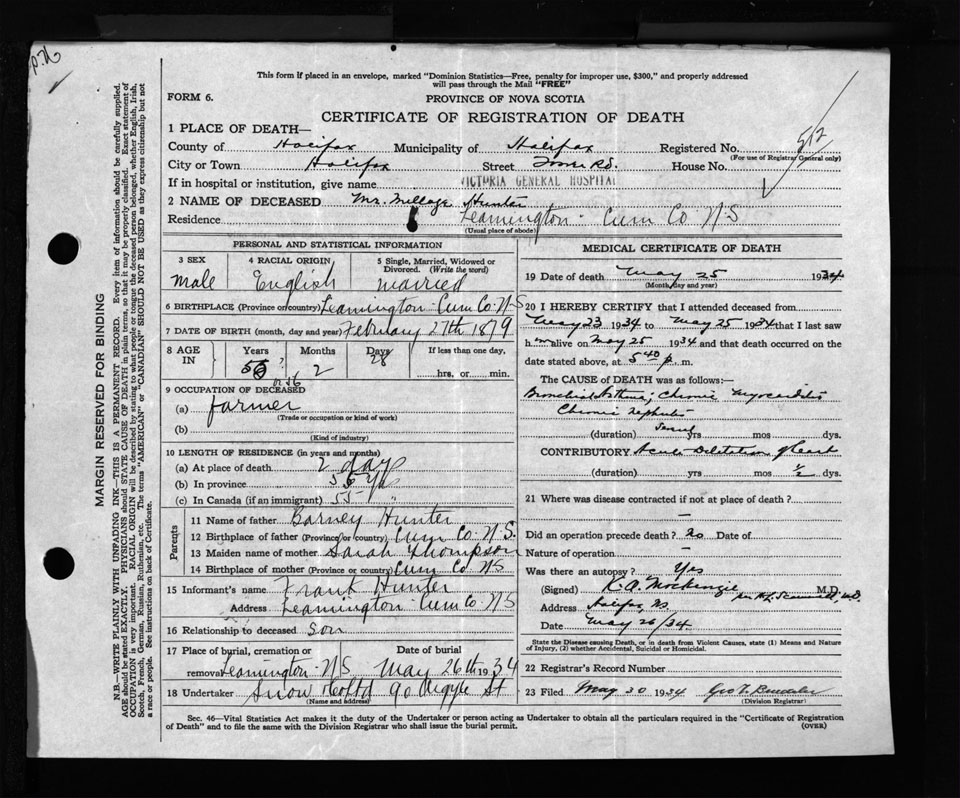 This form if placed in an envelope, marked "Dominion Statistics—Free, penalty for improper use, $300," and properly addressed
will pass through the Mail "FREE"
FORM 6.
PROVINCE OF NOVA SCOTIA
CERTIFICATE OF REGISTRATION OF DEATH
1 PLACE OF DEATH—
County of Halifax Municipality of Halifax Registered No. 512
(For use of Registrar General only)
City or Town Halifax Street Tower Rd. House No.
If in hospital or institution, give name VICTORIA GENERAL HOSPITAL
2 NAME OF DECEASED Mr. Millage Hunter
Residence Leamington - Cum Co N-S
(Usual place of abode)
PERSONAL AND STATISTICAL INFORMATION
3 SEX 4 RACIAL ORIGIN 5 Single, Married, Widowed or
Divorced. (Write the word)
male English married
6 BIRTHPLACE (Province or country) Leamington - Cum Co. N-S
7 DATE OF BIRTH (month, day and year) February 27th 1879
8 AGE IN Years Months Days If less than one day,
55? 2 28 hrs. or min.
or 56
9 OCCUPATION OF DECEASED
(a) farmer
(Trade or occupation or kind of work)
(b)
(Kind of industry)
10 LENGTH OF RESIDENCE (in years and months)
(a) At place of death 2 days
(b) In province 55 yrs
(c) In Canada (if an immigrant) 55 "
Parents
11 Name of father Barney Hunter
12 Birthplace of father (Province or country) Cum Co. N.S.
13 Maiden name of mother Sarah Thompson
14 Birthplace of mother (Province or country) Cum Co NS
15 Informant's name Frank Hunter
Address Leamington - Cum Co N S
16 Relationship to deceased Son
17 Place of burial, cremation or Date of burial
removal Leamington - N S May 26th 1934
18 Undertaker Snow & Co Ltd 90 Argyle St
(Name and address)
MEDICAL CERTIFICATE OF DEATH
19 Date of death May 25 1934
(Month, day and year)
20 I HEREBY CERTIFY that I attended deceased from
May 23 1934 to May 25 1934 that I last saw
h m alive on May 25 1934 and that death occurred on the
date stated above, at 5 40 p. m.
The CAUSE OF DEATH was as follows:—
Bronchial Asthma; Chronic Myocarditis
Chronic Nephritis
(duration) Several yrs mos dys.
CONTRIBUTORY Acute Dilatation of Heart
(duration) yrs mos ½ dys.
21 Where was disease contracted if not at place of death? —
Did an operation precede death? no Date of
Nature of operation —
Was there an autopsy? Yes
(Signed) K. A. MacKenzie M.D.
Address Halifax NS.
Date May 26/34.
State the Disease causing Death, or in death from Violent Causes, state (1) Means and Nature
of Injury, (2) whether Accidental, Suicidal or Homicidal.
22 Registrar's Record Number
23 Filed May 30 1934
(Division Registrar)
Sec. 46—Vital Statistics Act makes it the duty of the Undertaker or person acting as Undertaker to obtain all the particulars required in the "Certificate of Registration
of Death" and to file the same with the Division Registrar who shall issue the burial permit. (OVER)
MARGIN RESERVED FOR BINDING
N.B.—WRITE PLAINLY WITH UNFADING INK—THIS IS A PERMANENT RECORD. Every item of information should be carefully supplied.
AGE should be stated EXACTLY. PHYSICIANS should STATE CAUSE OF DEATH in plain terms, so that it may be properly classified. Exact statement of
OCCUPATION is very important. RACIAL ORIGIN will be described by stating to what people or tongue the deceased person belonged, whether English, Irish,
Scotch, French, German, Russian, Ruthenian, etc. The terms "AMERICAN" or "CANADIAN" SHOULD NOT BE USED as they express citizenship but not
a race or people. See instructions on back of Certificate.